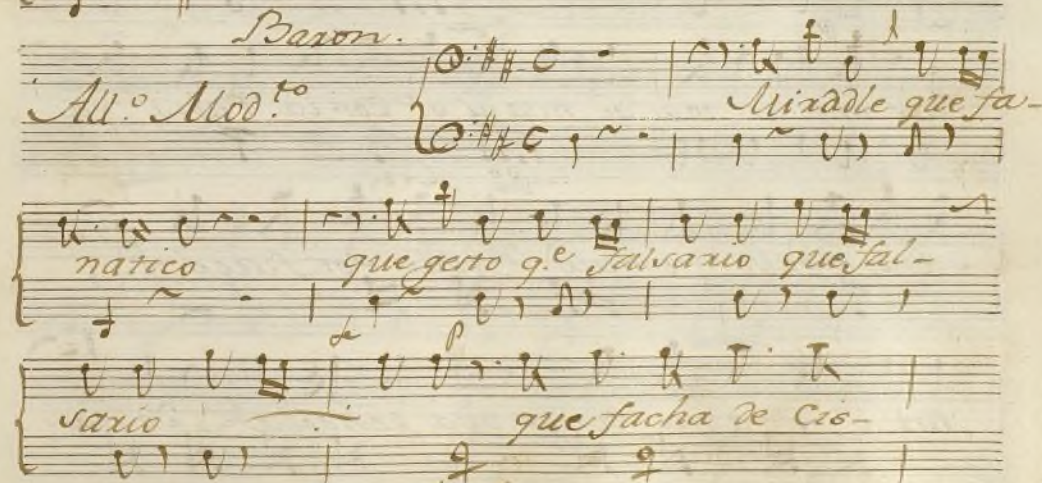 Baron.
All.º Mod.to
Miradle que fa-
natico que gesto q.e falsario que fal-
fe p
sario que facha de Cis-